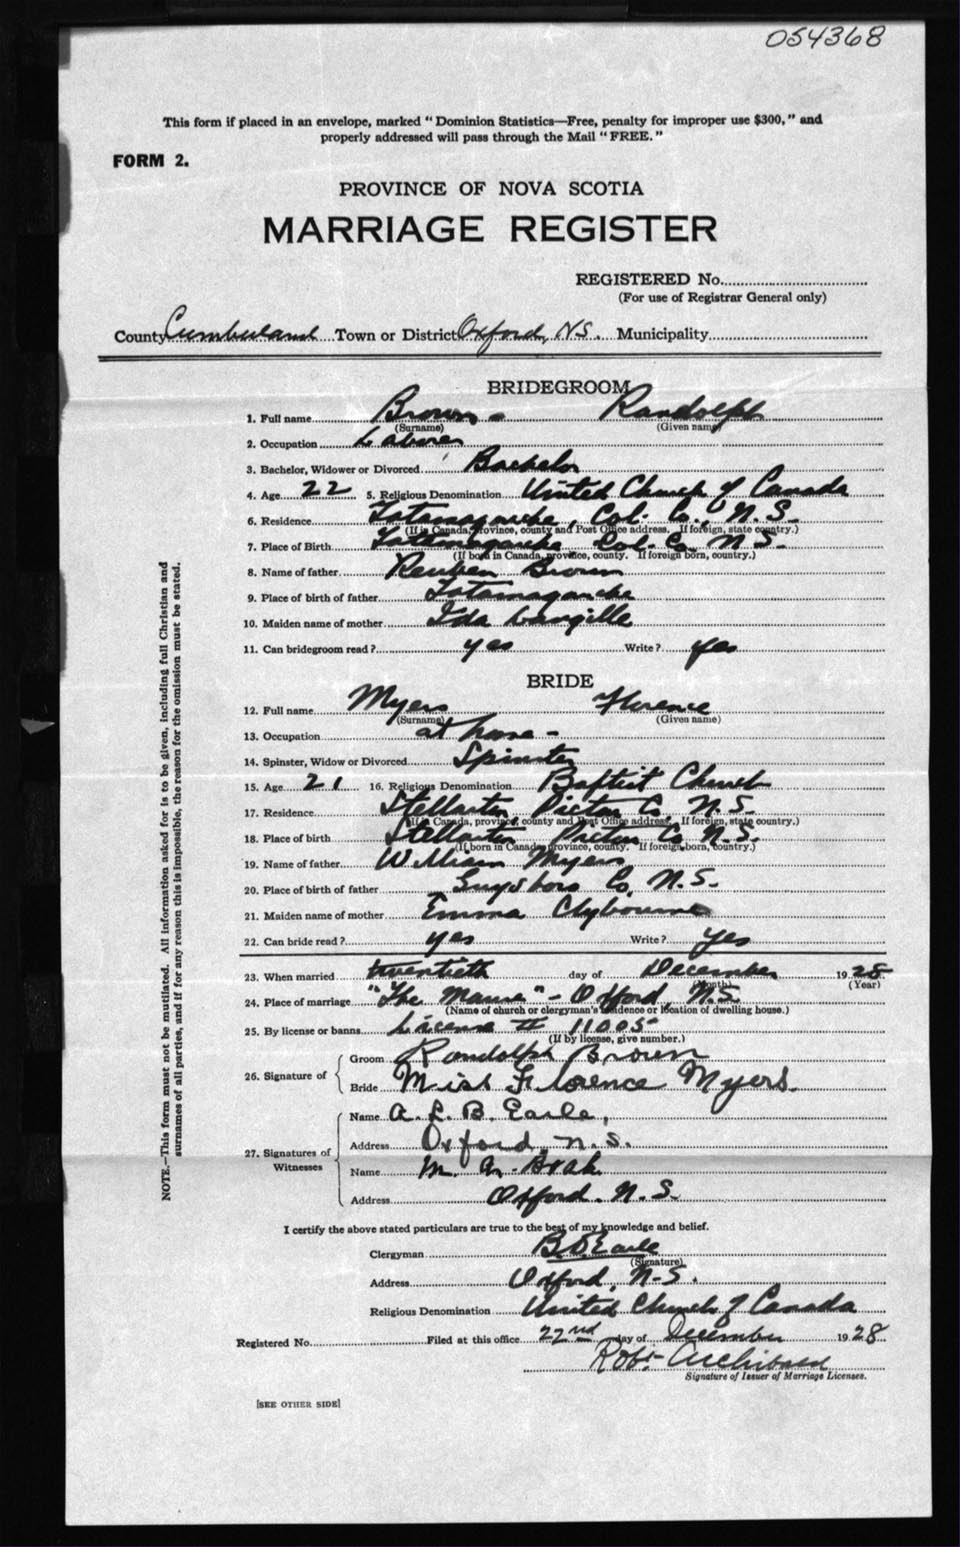 054368
This form if placed in an envelope, marked "Dominion Statistics—Free, penalty for improper use $300," and
properly addressed will pass through the Mail "FREE."
FORM 2.
PROVINCE OF NOVA SCOTIA
MARRIAGE REGISTER
REGISTERED No.
(For use of Registrar General only)
County Cumberland Town or District Oxford, N.S. Municipality
BRIDEGROOM
1. Full name Brown - Randolph
(Surname) (Given name)
2. Occupation Laborer
3. Bachelor, Widower or Divorced Bachelor
4. Age 22 5. Religious Denomination United Church of Canada
6. Residence Tatamagouche, Col. Co., N.S.
(If in Canada, province, county and Post Office address. If foreign, state country.)
7. Place of Birth Tatamagouche Col. Co. N.S.
(If born in Canada, province, county. If foreign born, country.)
8. Name of father Reuben Brown
9. Place of birth of father Tatamagouche
10. Maiden name of mother Ida Langille
11. Can bridegroom read? yes Write? yes
BRIDE
12. Full name Myers Florence
(Surname) (Given name)
13. Occupation at home -
14. Spinster, Widow or Divorced Spinster
15. Age 21 16. Religious Denomination Baptist Church
17. Residence Stellarton Pictou Co. N.S.
(If in Canada, province, county and Post Office address. If foreign, state country.)
18. Place of birth Stellarton Pictou Co. N.S.
(If born in Canada, province, county. If foreign born, country.)
19. Name of father William Myers
20. Place of birth of father Guysboro Co, N.S.
21. Maiden name of mother Emma Clybourne
22. Can bride read? yes Write? yes
23. When married twentieth day of December 1928
(Month) (Year)
24. Place of marriage "The Manse" - Oxford, N.S.
(Name of church or clergyman's residence or location of dwelling house.)
25. By license or banns License # 11005
(If by license, give number.)
26. Signature of
Groom Randolph Brown
Bride Miss Florence Myers.
27. Signatures of
Witnesses
Name A. L. B. Earle,
Address Oxford, N.S.
Name M. A.
Address Oxford. N.S.
I certify the above stated particulars are true to the best of my knowledge and belief.
Clergyman B.D. Earle
(Signature)
Address Oxford, N.S.
Religious Denomination United Church of Canada
Registered No. Filed at this office 22nd day of December 1928
Robt Archibald
Signature of Issuer of Marriage Licenses.
[SEE OTHER SIDE]
NOTE.—This form must not be mutilated. All information asked for is to be given, including full Christian and
surnames of all parties, and if for any reason this is impossible, the reason for the omission must be stated.